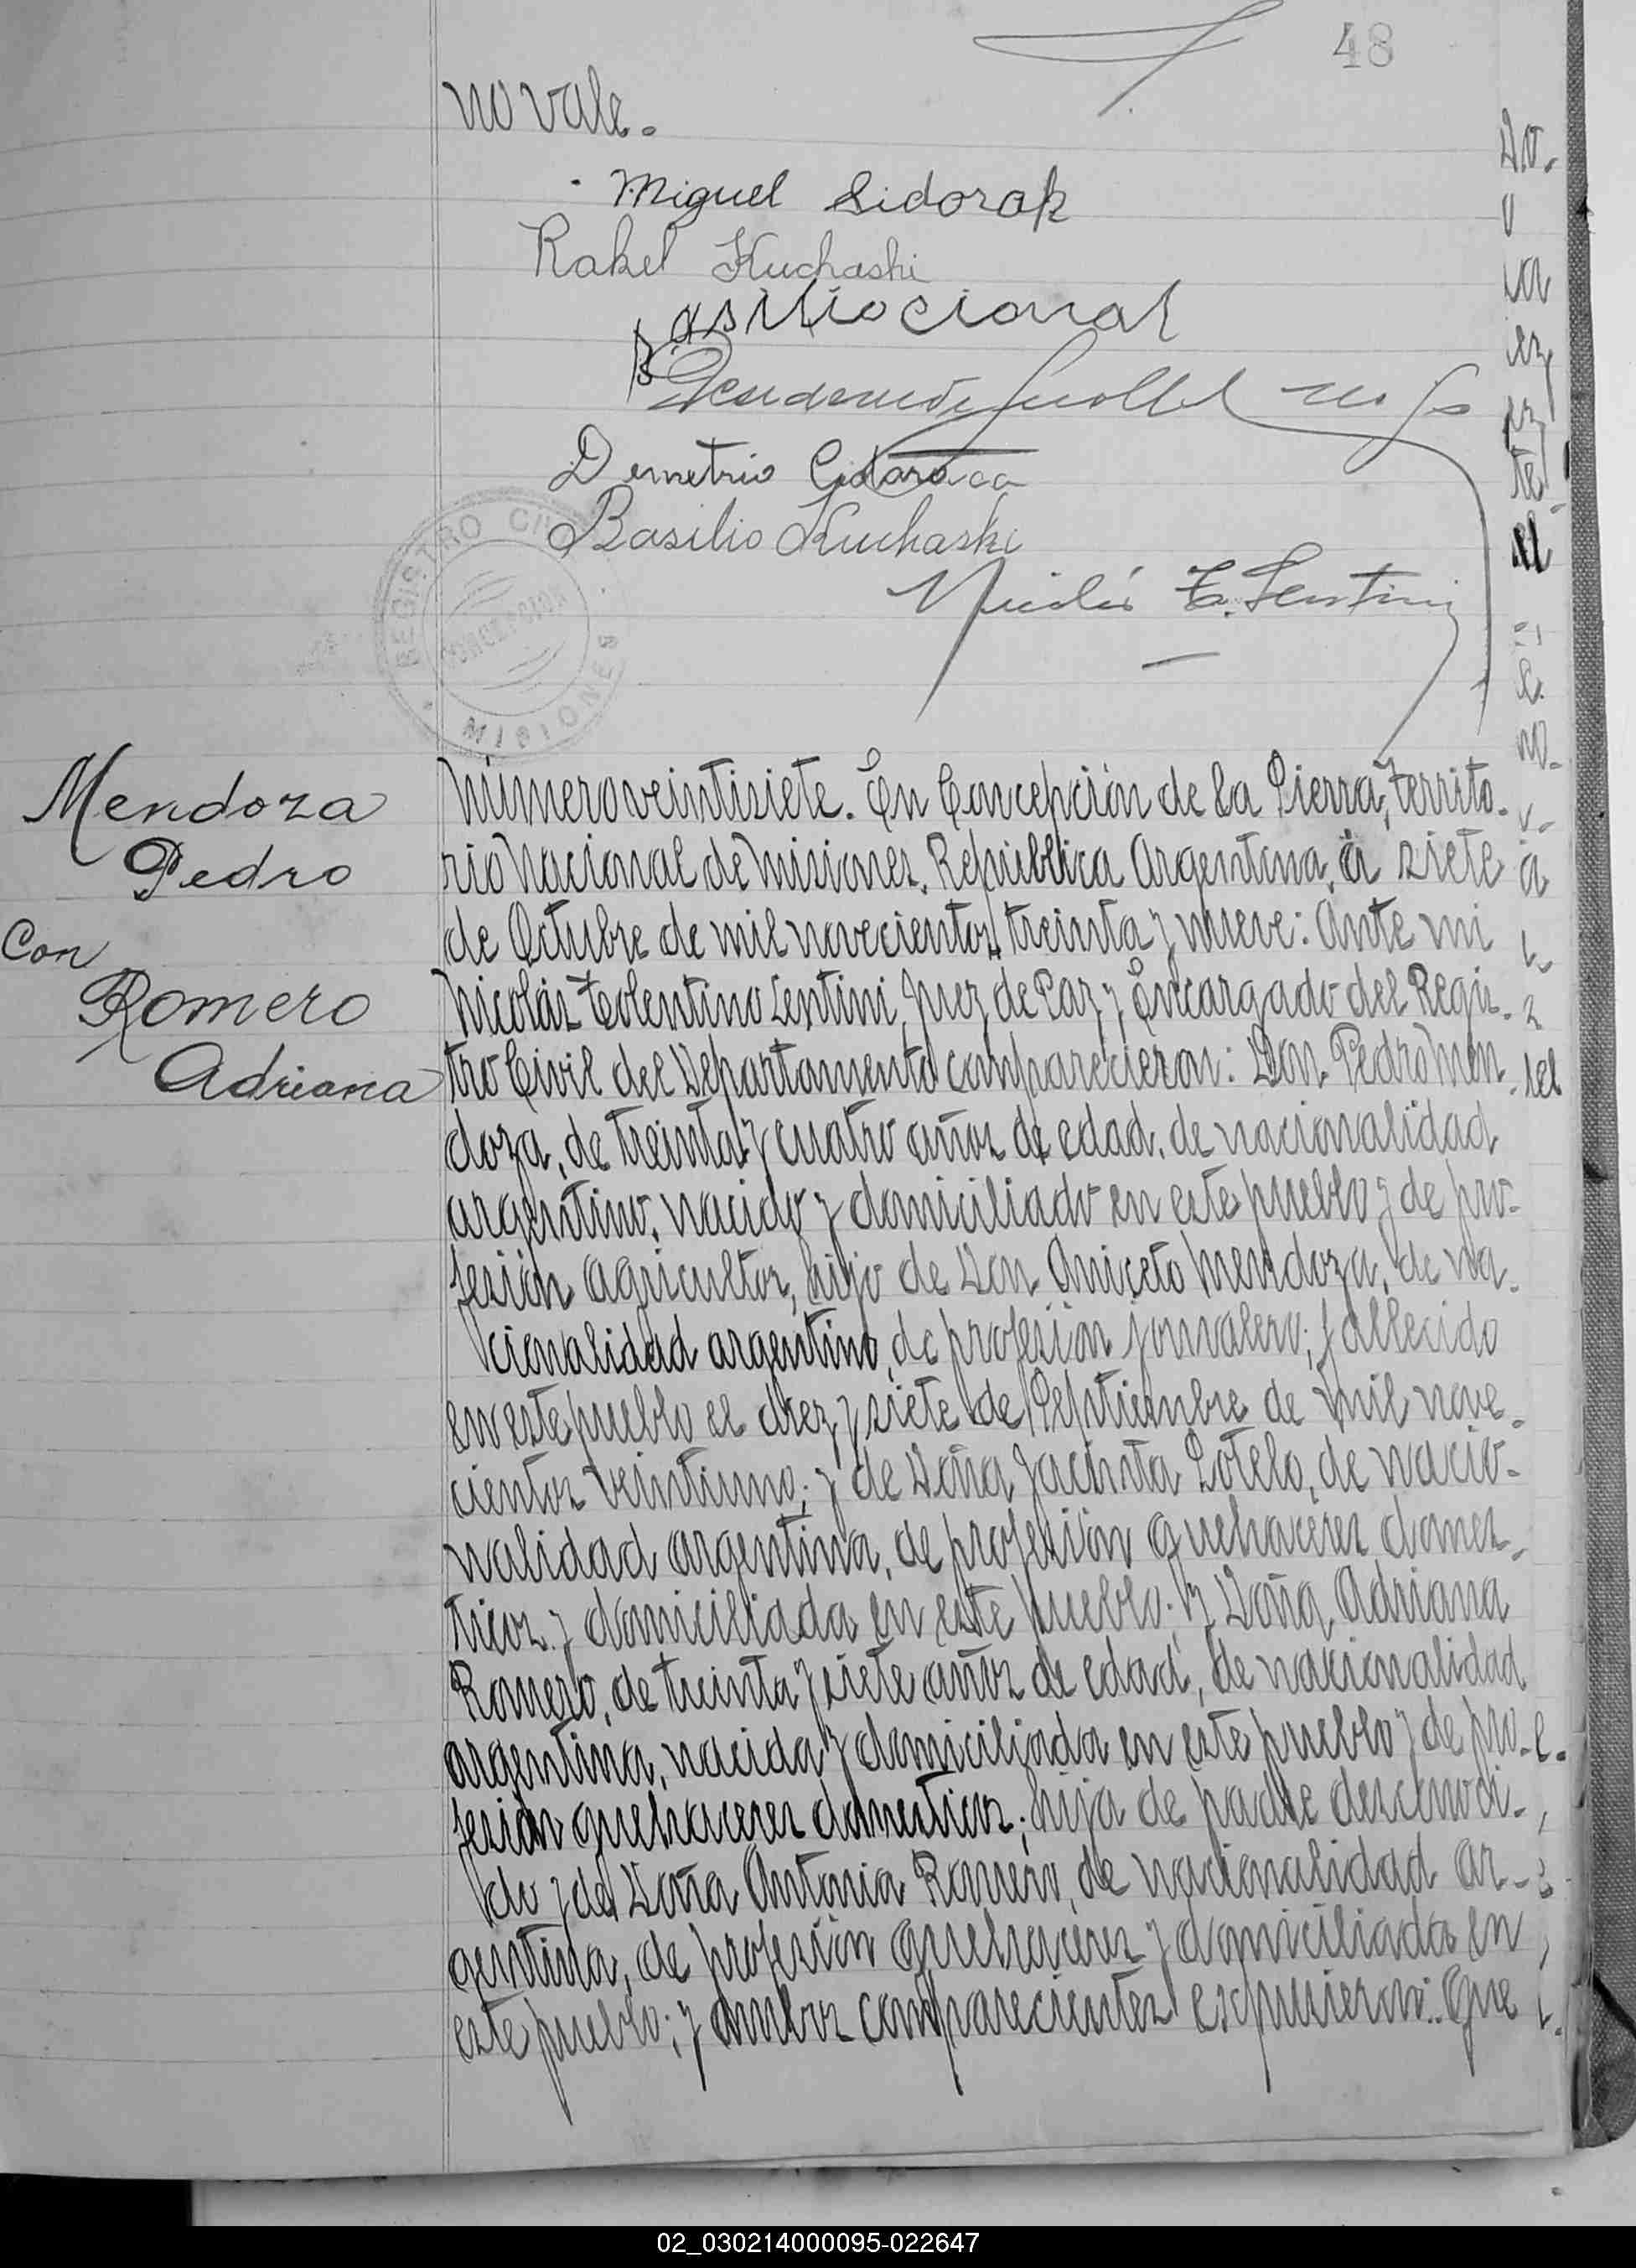 48
no vale.
Miguel Sidorak
Rakel Kuchaski
Basilio
Demetrio
Basilio Kuchaski
Nicolás T. Lentini
REGISTRO CIVIL
CONCEPCION
MISIONES
Mendoza
Pedro
Con
Romero
Adriana
Número veintisiete. En Concepción de la Sierra, Territo-
rio Nacional de Misiones, República Argentina, á siete
de Octubre de mil novecientos treinta y nueve: Ante mi
Nicolás Tolentino Lentini, Juez de Paz y Encargado del Regis-
tro Civil del Departamento comparecieron: Don Pedro Men-
doza, de treinta y cuatro años de edad, de nacionalidad
argentino, nacido y domiciliado en este pueblo y de pro-
fesión agricultor, hijo de Don Aniceto Mendoza, de na-
cionalidad argentino, de profesión jornalero; fallecido
en este pueblo el diez y siete de Septiembre de mil nove-
cientos veintiuno; y de Doña Jacinta Sotelo, de nacio-
nalidad argentina, de profesión quehaceres domes-
ticos y domiciliada en este pueblo; y Doña Adriana
Romero, de treinta y siete años de edad, de nacionalidad
argentina, nacida y domiciliada en este pueblo y de pro-
fesión quehaceres domesticos; hija de padre desconoci-
do y de Doña Antonia Romero, de nacionalidad ar-
gentina, de profesión quehaceres y domiciliada en
este pueblo; y ambos comparecientes expusieron: Que
02_030214000095-022647